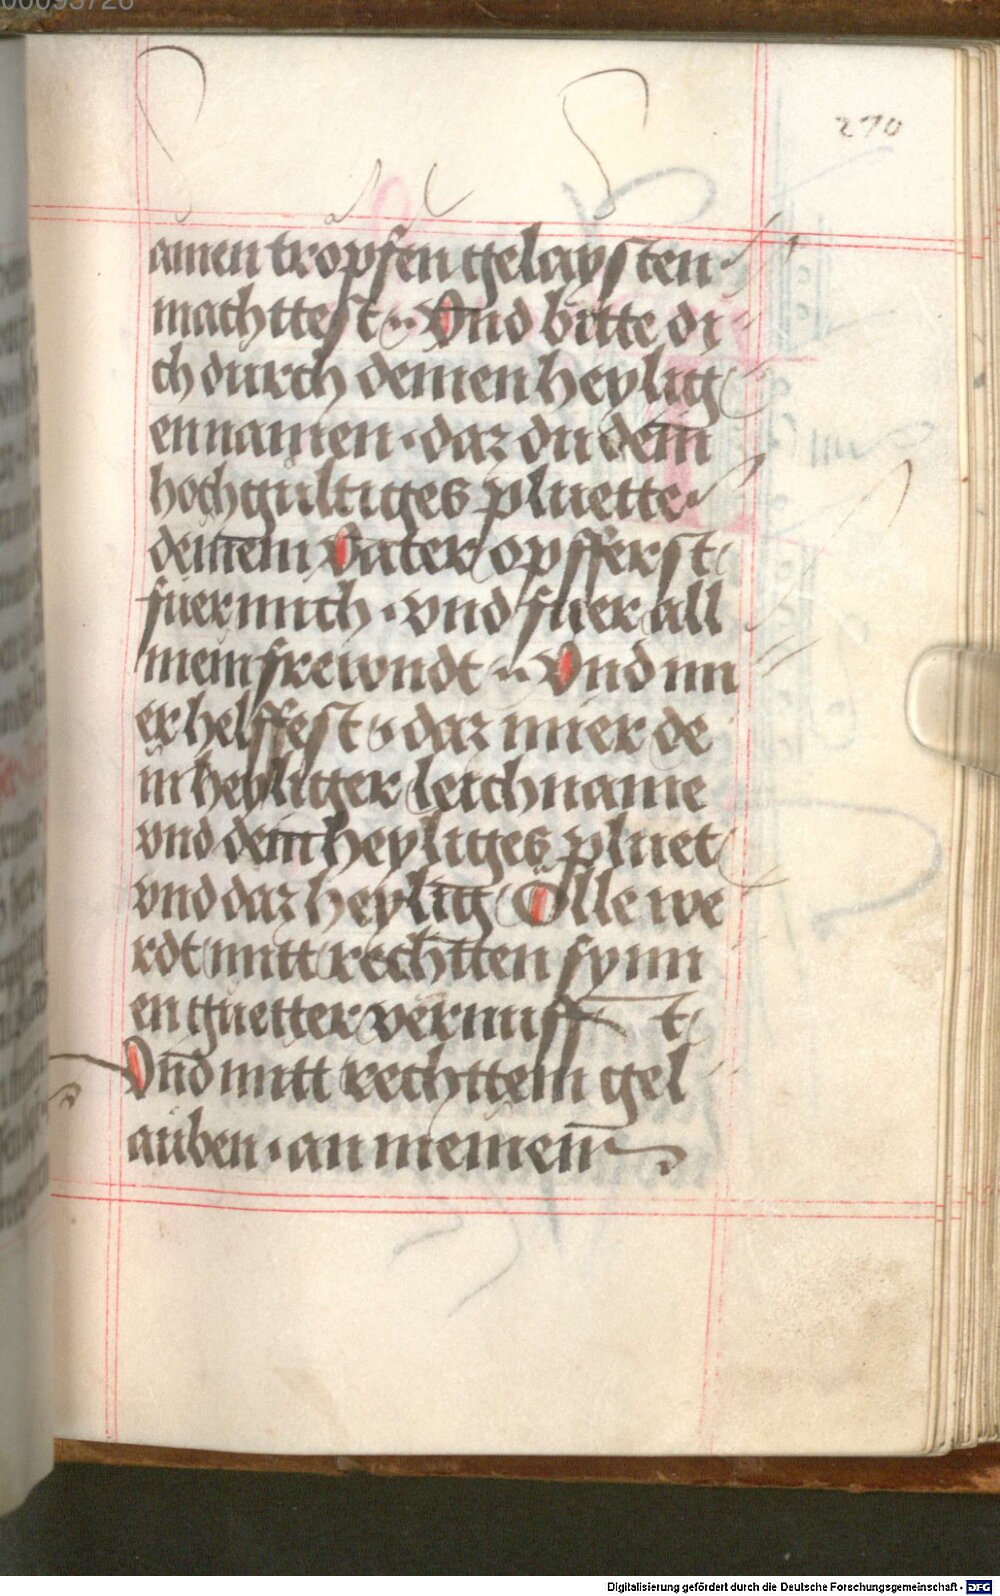 270
amen tropfen gelaysten
machttest Vnd bitte di
ch durch deinen heylig
en namen · daz du dein
hochgultiges pluette
deinem Vater opfferst
fuer mich · vnd fuer all
mein frewndt Vnd mi
er helffest daz mier de
in heyliger leichname
vnd dein heyliges pluet
vnd daz heylig Ölle we
rdt mitt rechtten synn
en guetter vernufft
Vnd mitt rechttem gel
auben · an meinem
Digitalisierung gefördert durch die Deutsche Forschungsgemeinschaft - DFG